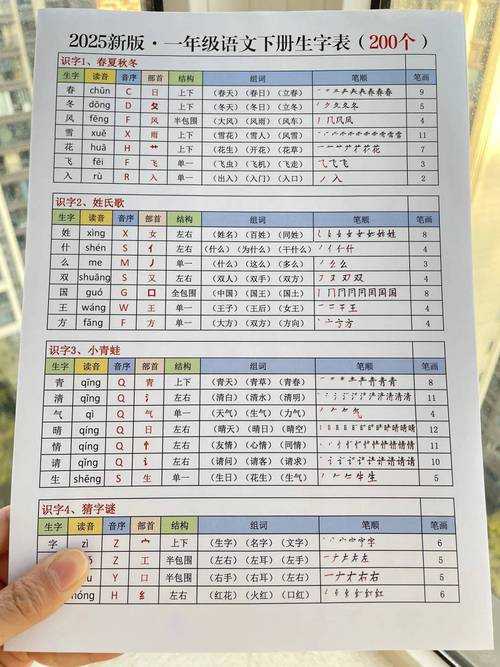 2025新版·一年级语文下册生字表（200个）
识字1、春夏秋冬
生字 读音 音序 部首 结构 组词 笔顺 笔画
春 chūn C 日 上下 （春天）（春日）（立春） 9
冬 dōng D 夂 上下 （冬天）（冬日）（立冬） 5
风 fēng F 风 半包围 （大风）（风车）（风雨） 4
雪 xuě X 雨 上下 （雪花）（雪人）（风雪） 11
花 huā H 艹 上下 （花生）（开花）（花草） 7
飞 fēi F 飞 单一 （飞虫）（飞机）（飞走） 3
入 rù R 入 单一 （出入）（入门）（入口） 2
识字2、姓氏歌
生字 读音 音序 部首 结构 组词 笔顺 笔画
姓 xìng X 女 左右 （姓名）（百姓）（同姓） 8
什 shén S 亻 左右 （什么）（为什么）（干什么） 4
么 me M 丿 单一 （什么）（这么）（多么） 3
双 shuāng S 又 左右 （双人）（双手）（双方） 4
国 guó G 囗 全包围 （中国）（国王）（国土） 8
王 wáng W 王 单一 （王子）（王后）（女王） 4
方 fāng F 方 单一 （大方）（方方）（方向） 4
识字3、小青蛙
生字 读音 音序 部首 结构 组词 笔顺 笔画
青 qīng Q 青 上下 （青天）（青草）（青春） 8
清 qīng Q 氵 左右 （清白）（清水）（清明） 11
气 qì Q 气 单一 （天气）（生气）（力气） 4
晴 qíng Q 日 左右 （晴天）（晴日）（晴空） 12
情 qíng Q 忄 左右 （友情）（心情）（同情） 11
请 qǐng Q 讠 左右 （请问）（请客）（请求） 10
生 shēng S 生 单一 （生日）（花生）（生气） 5
识字4、猜字谜
生字 读音 音序 部首 结构 组词 笔顺 笔画
字 zì Z 宀 上下 （生字）（名字）（文字） 6
Z 工 半包围 （左右）（左耳）（左手） 5
Y 口 半包围 （右手）（右耳）（左右） 5
hóng H 纟 左右 （红花）（火红）（口红） 6